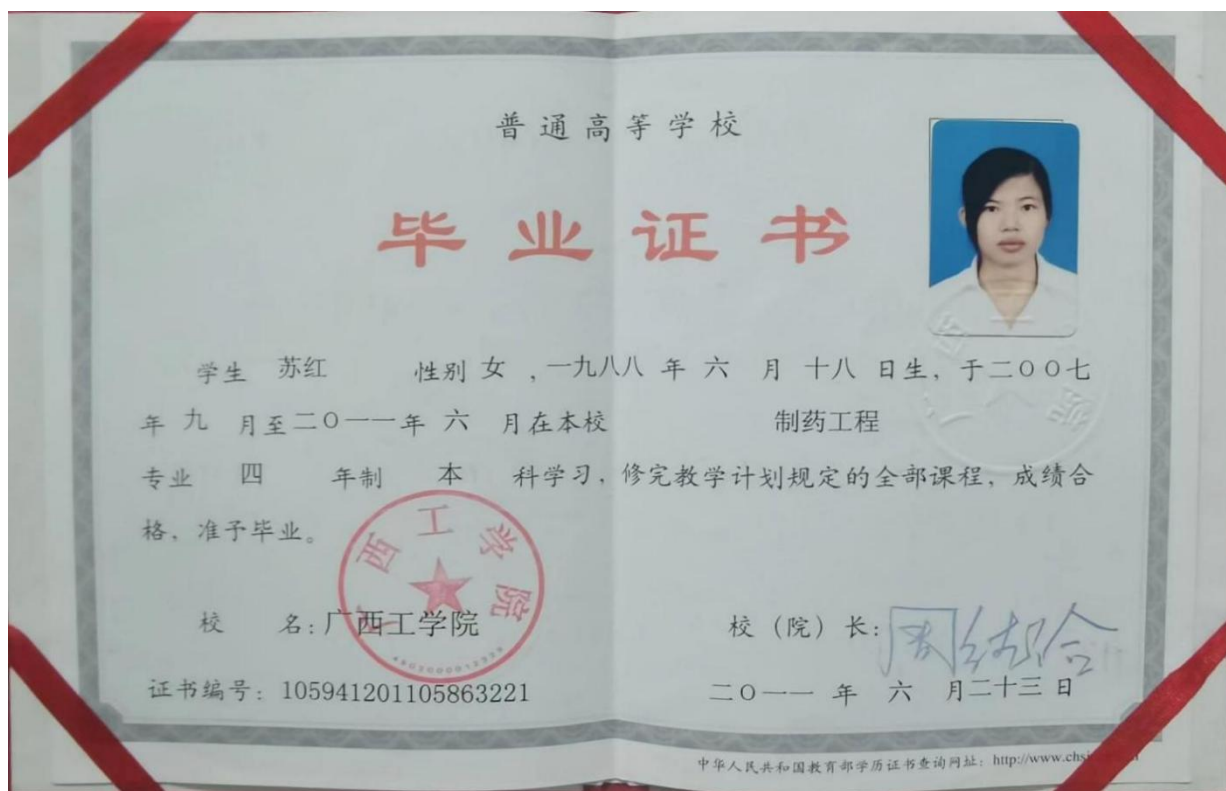 普通高等学校
毕业证书
学生 苏红 性别 女 ，一九八八 年 六 月 十八 日生，于二〇〇七
年 九 月至二〇一一年 六 月在本校 制药工程
专业 四 年制 本 科学习，修完教学计划规定的全部课程，成绩合
格，准予毕业。
广西工学院
校 名：广西工学院
校（院）长：周结合
证书编号：105941201105863221
二〇一一 年 六 月二十三日
中华人民共和国教育部学历证书查询网址：http://www.chsi